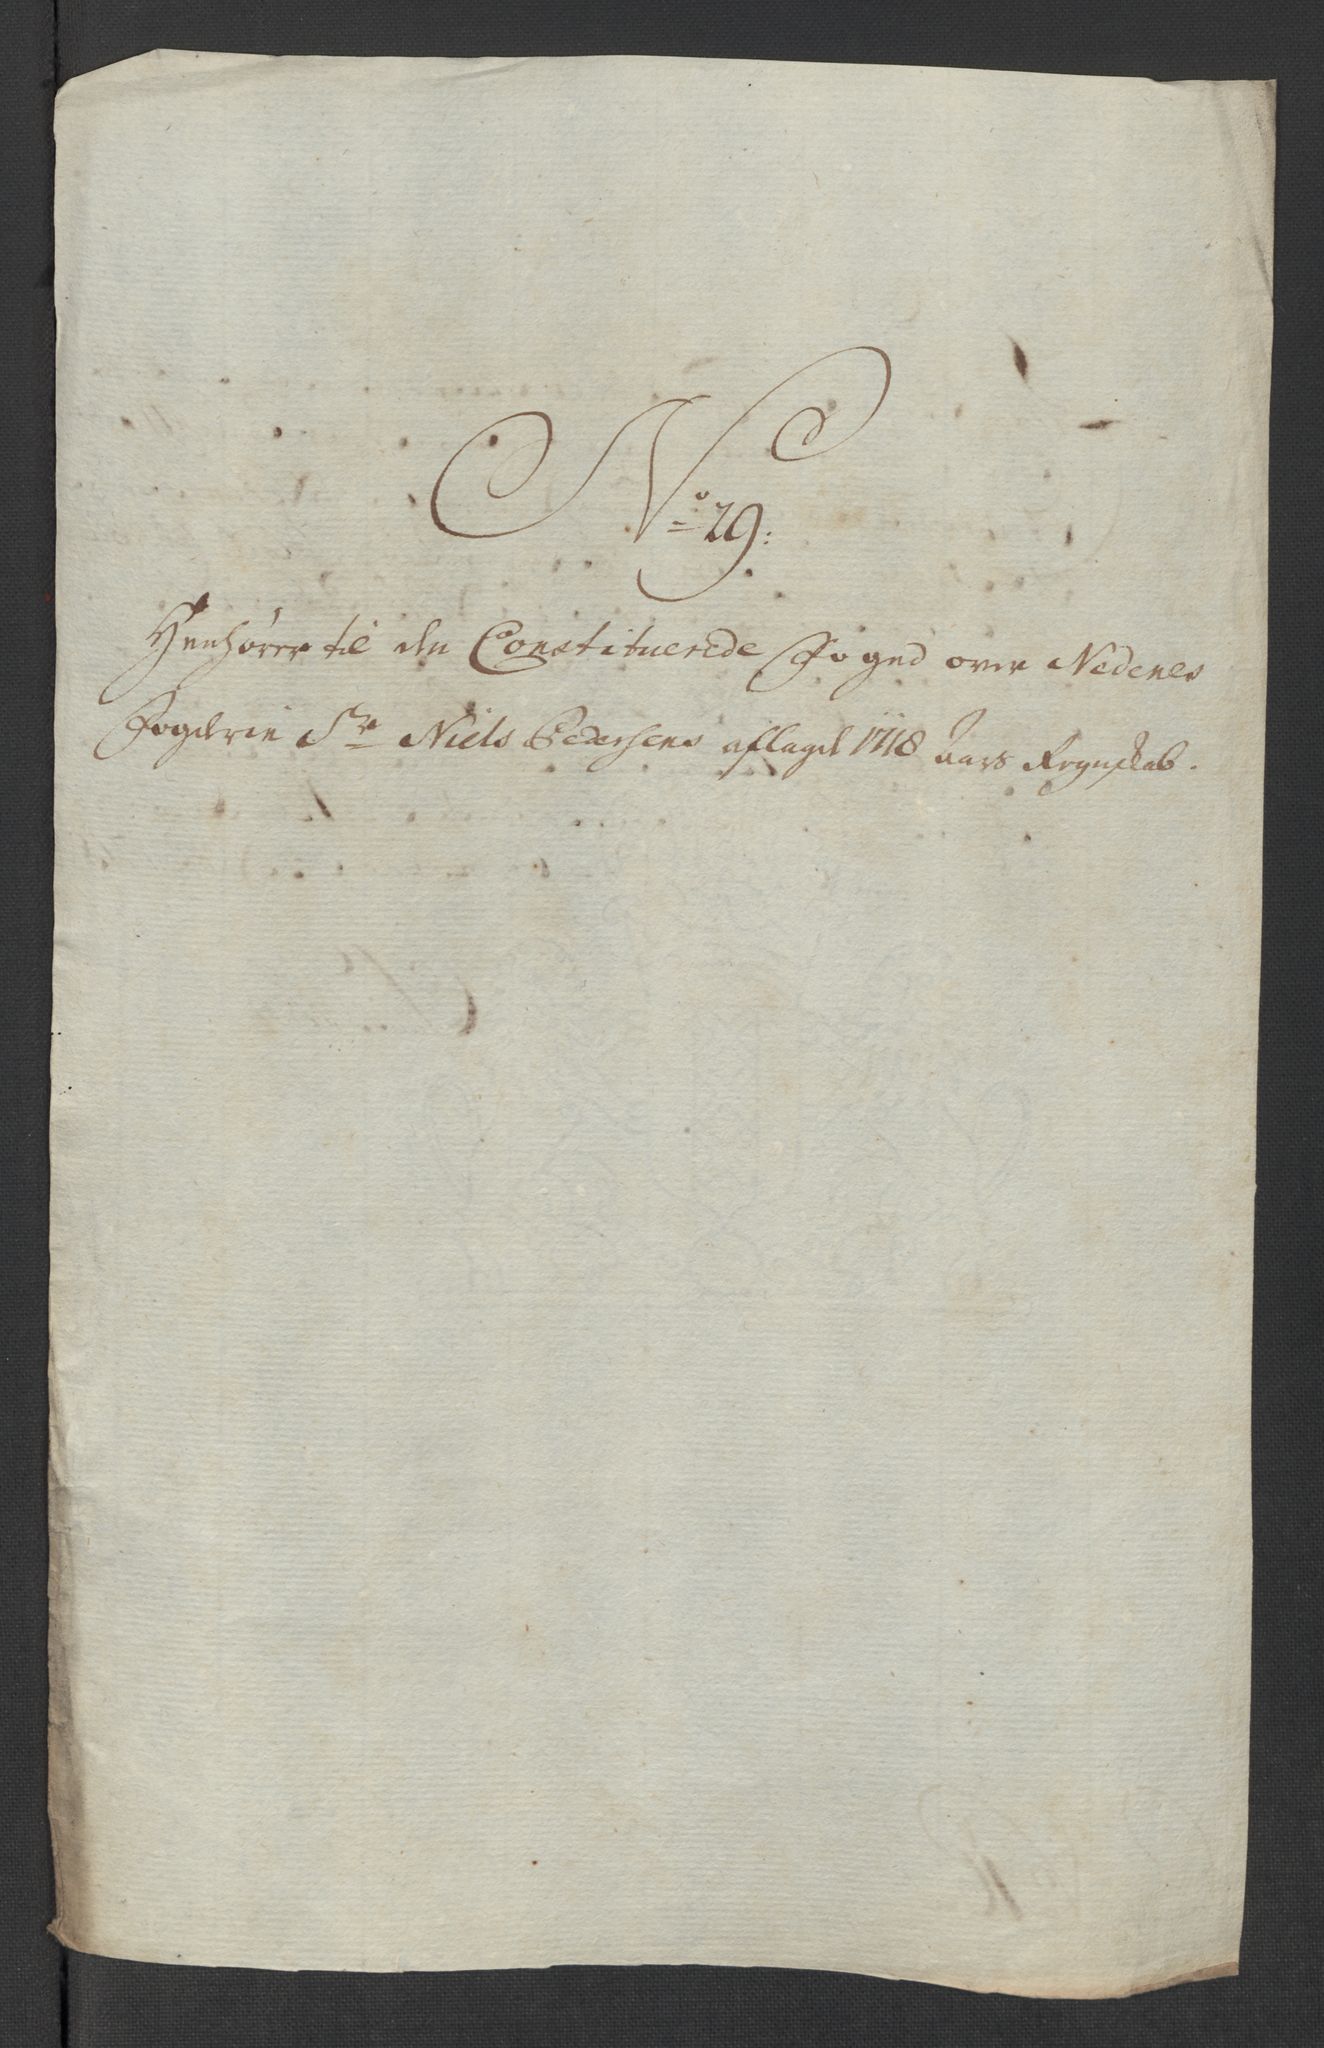 No 29:
Henhører til den Constituerede Foged over Nedenes
Fogderie Sr Niels Pedersens aflagde 1718 Aars Regnskab.